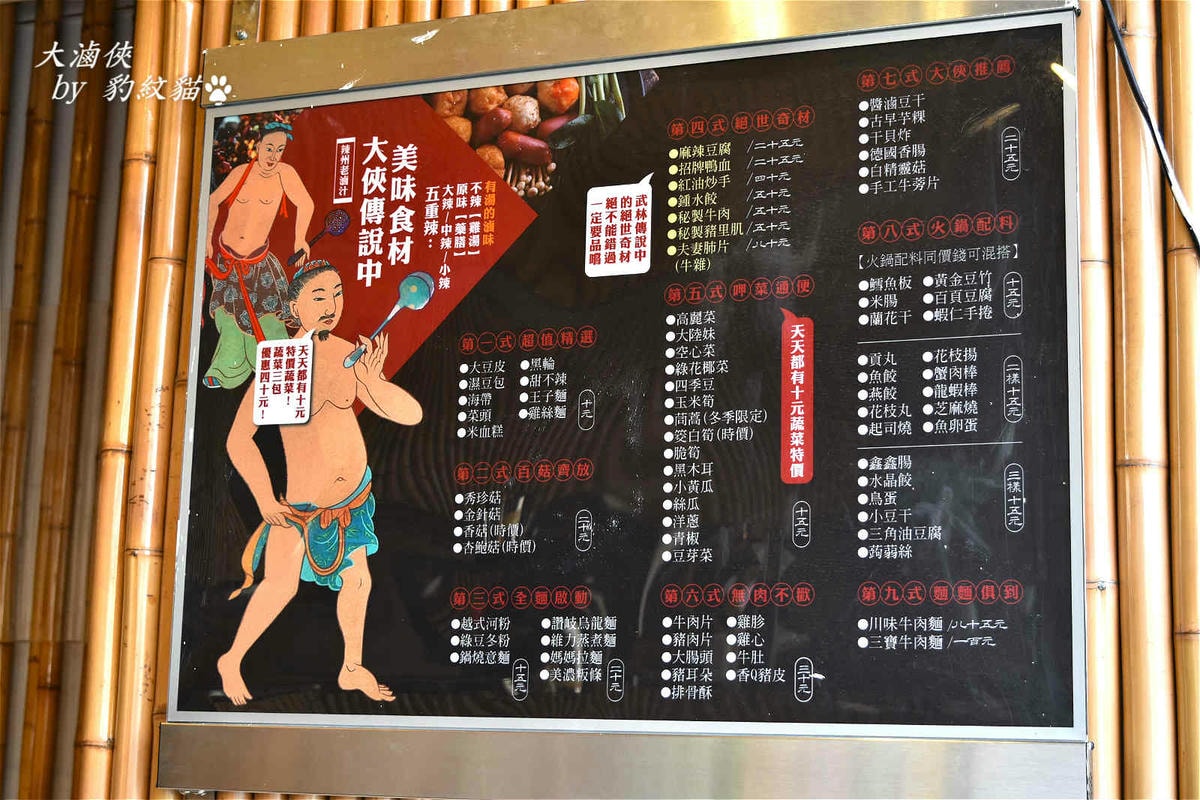 大滷俠
by 豹紋貓
辣州老滷汁
大俠傳說中
美味食材
有湯的滷味
不辣【雞湯】
原味【藥膳】
大辣－中辣－小辣
五重辣：
天天都有十元
特價蔬菜！
蔬菜三包
優惠四十元！
第一式 超值精選
●大豆皮
●濕豆包
●海帶
●菜頭
●米血糕
●黑輪
●甜不辣
●王子麵
●雞絲麵
十元
第二式 百菇齊放
●秀珍菇
●金針菇
●香菇(時價)
●杏鮑菇(時價)
二十元
第三式 全麵啟動
●越式河粉
●綠豆冬粉
●鍋燒意麵
十五元
●讚岐烏龍麵
●維力蒸煮麵
●媽媽拉麵
●美濃粄條
二十元
武林傳說中
的絕世奇材
絕不能錯過
一定要品嚐
第四式 絕世奇材
●麻辣豆腐 /二十五元
●招牌鴨血 /二十五元
●紅油炒手 /四十元
●鍾水餃 /五十元
●秘製牛肉 /五十元
●秘製豬里肌 /五十元
●夫妻肺片 /八十元
(牛雜)
第五式 呷菜通便
●高麗菜
●大陸妹
●空心菜
●綠花椰菜
●四季豆
●玉米筍
●茼蒿(冬季限定)
●筊白筍(時價)
●脆筍
●黑木耳
●小黃瓜
●絲瓜
●洋蔥
●青椒
●豆芽菜
天天都有十元蔬菜特價
十五元
第六式 無肉不歡
●牛肉片
●豬肉片
●大腸頭
●豬耳朵
●排骨酥
●雞胗
●雞心
●牛肚
●香Q豬皮
三十元
第七式 大俠推薦
●醬滷豆干
●古早芋粿
●干貝炸
●德國香腸
●白精靈菇
●手工牛蒡片
二十五元
第八式 火鍋配料
【火鍋配料同價錢可混搭】
●鱈魚板
●米腸
●蘭花干
●黃金豆竹
●百頁豆腐
●蝦仁手捲
十五元
●貢丸
●魚餃
●燕餃
●花枝丸
●起司燒
●花枝揚
●蟹肉棒
●龍蝦棒
●芝麻燒
●魚卵蛋
二樣十五元
●鑫鑫腸
●水晶餃
●鳥蛋
●小豆干
●三角油豆腐
●蒟蒻絲
三樣十五元
第九式 麵麵俱到
●川味牛肉麵 /八十五元
●三寶牛肉麵 /一百元